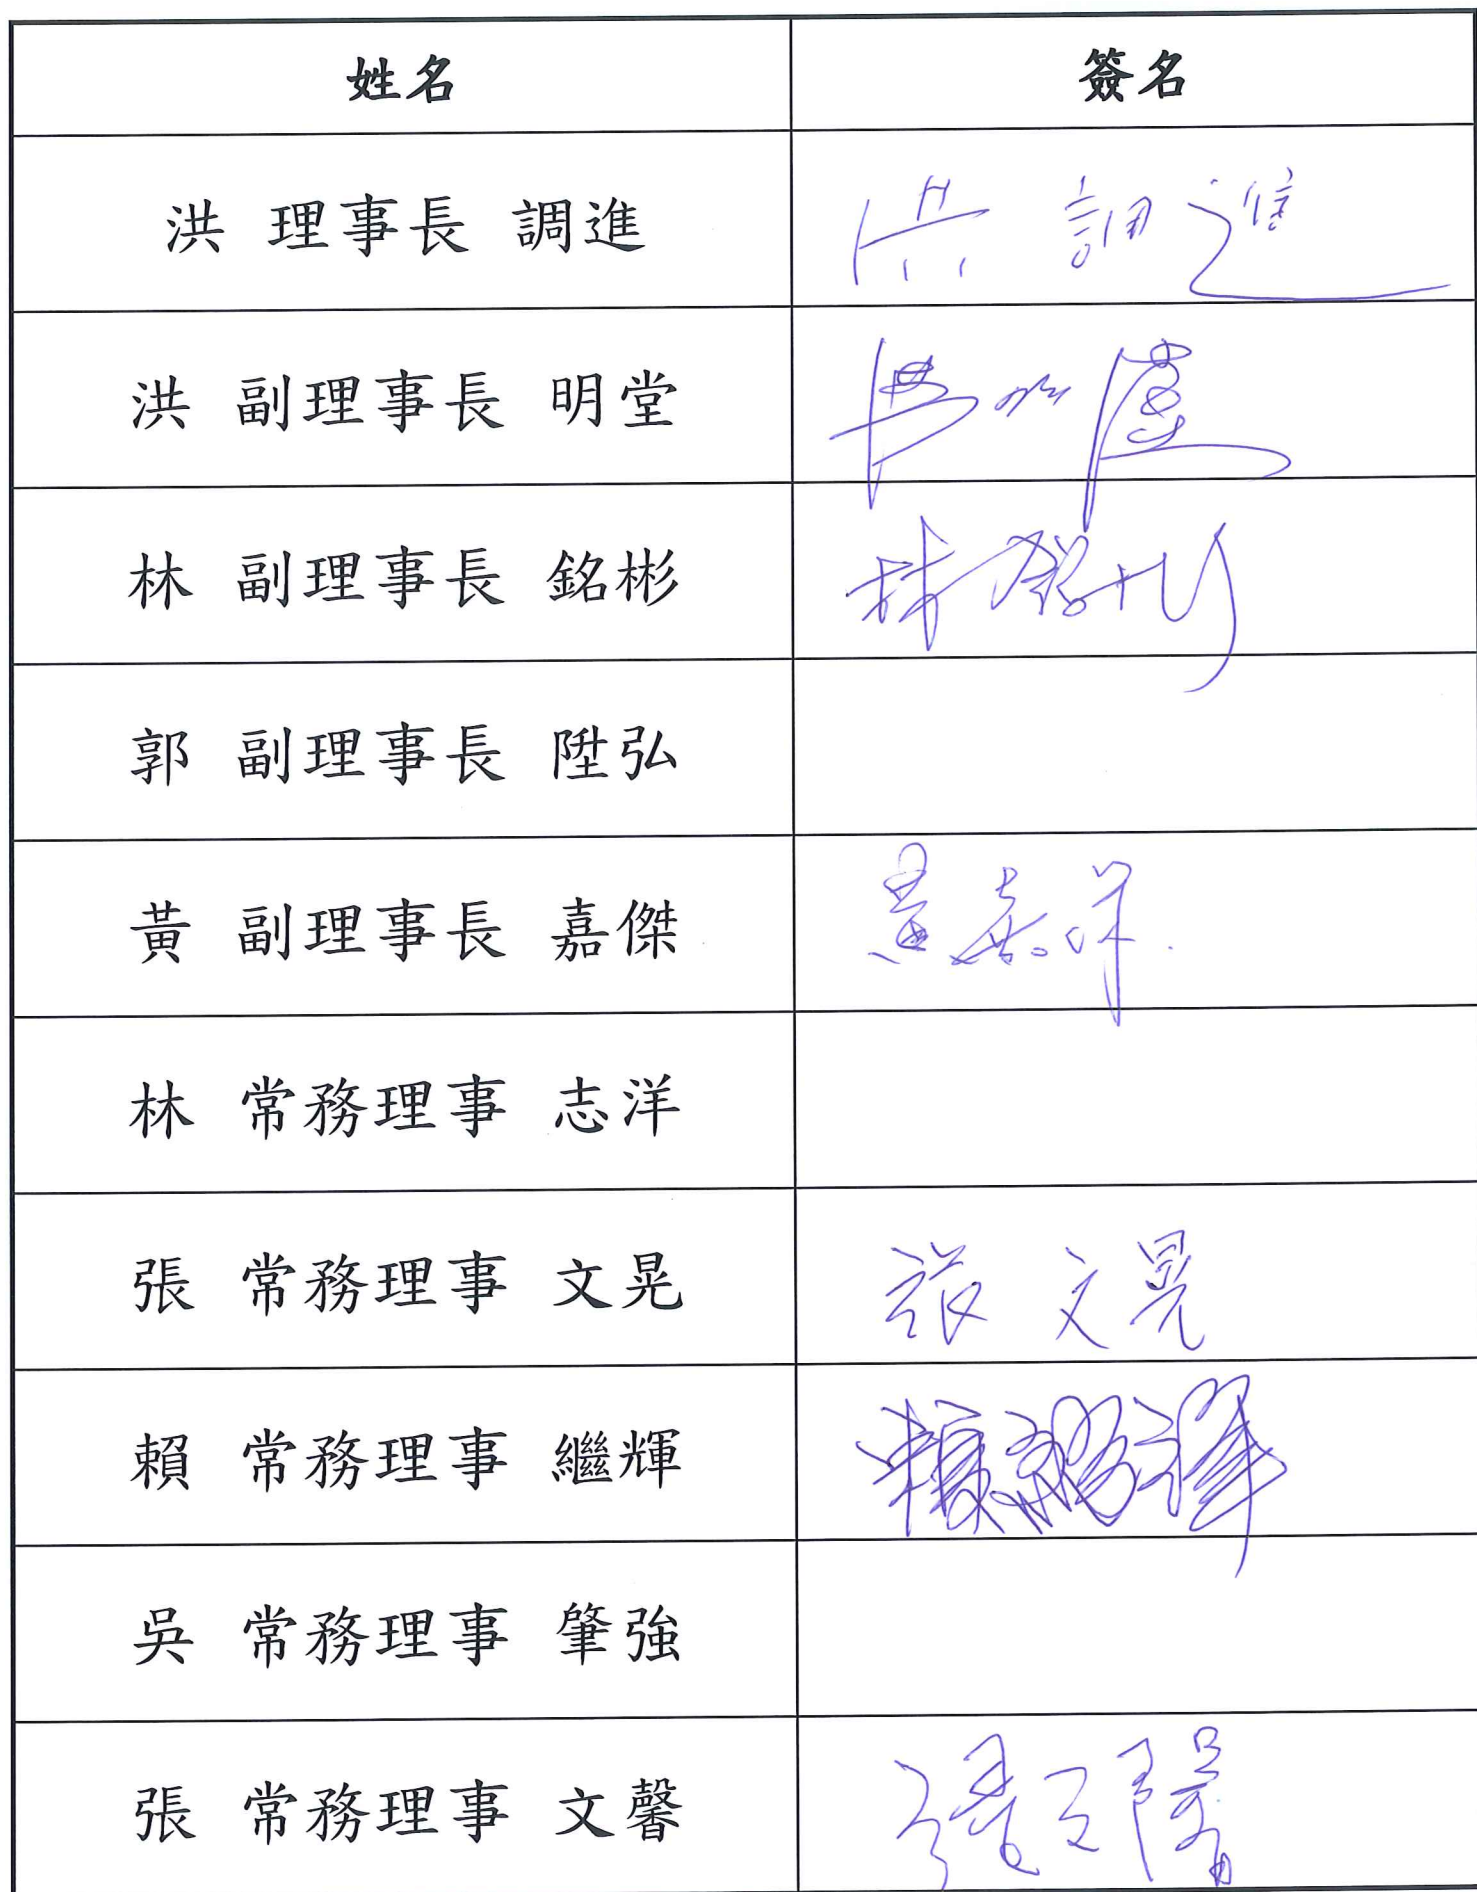 姓名 簽名
洪 理事長 調進 洪 調進
洪 副理事長 明堂
林 副理事長 銘彬 林銘彬
郭 副理事長 陞弘
黃 副理事長 嘉傑 黃嘉
林 常務理事 志洋
張 常務理事 文晃 張 文晃
賴 常務理事 繼輝 賴繼輝
吳 常務理事 肇強
張 常務理事 文馨 張文馨